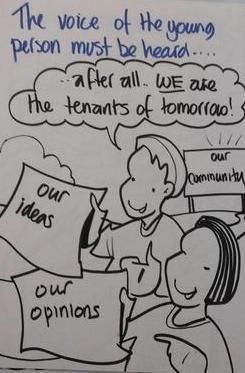 The voice of the young
person must be heard....
..after all.. WE are
the tenants of tomorrow!
our
community
our
ideas
our
opinions